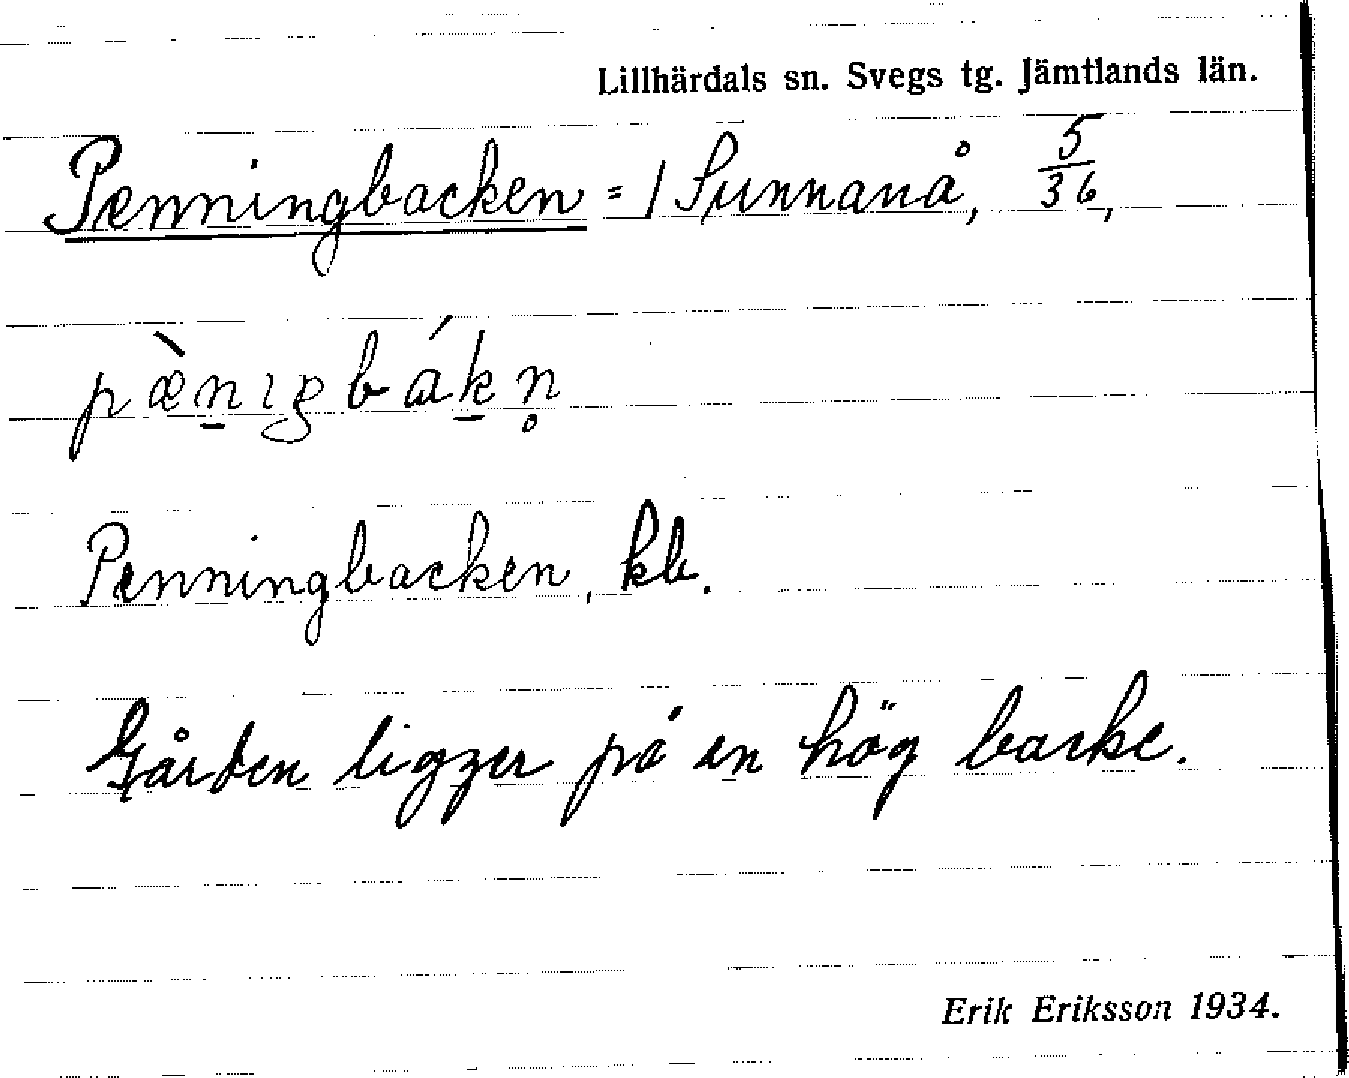 Lillhärdals sn. Svegs tg. Jämtlands län.
Penningbacken = 1 Sunnanå, 5/36,
pæ̀n̲ıgbák̲n̥
Penningbacken, kb.
Gården ligger på en hög backe.
Erik Eriksson 1934.